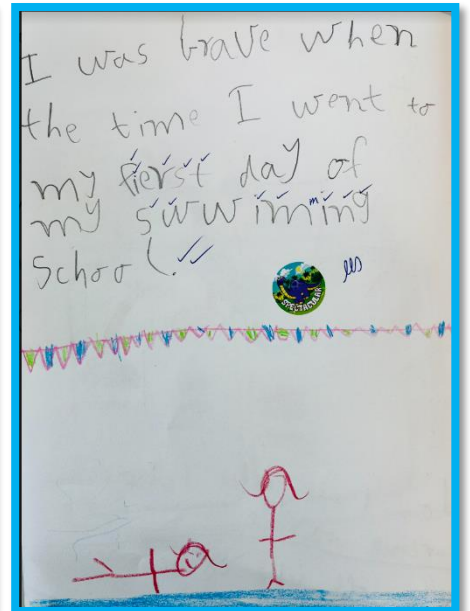 I was brave when
the time I went to
my fierst day of
my swwimmimg
School.
SPECTACULAR